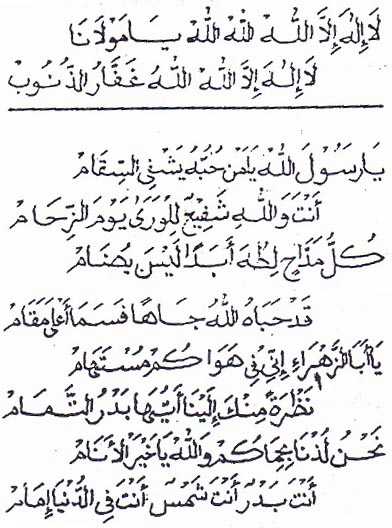 لَا إِلٰهَ إِلَّا اللّٰه اللّٰه اللّٰه يَا مَوْلَانَا
لَا إِلٰهَ إِلَّا اللّٰه اللّٰهُ غَفَّارُ الذُّنُوبْ
يَا رَسُولَ اللّٰه يَا مَنْ حُبُّهُ يَشْفِي السِّقَامْ
أَنْتَ وَاللّٰهِ شَفِيعٌ لِلْوَرَى يَوْمَ الزِّحَامْ
كُلُّ مَدَّاحٍ لِطٰهَ أَبَدًا لَيْسَ يُضَامْ
قَدْ حَبَاهُ اللّٰهُ جَاهًا فَسَمَا أَعْلَى مَقَامْ
يَا أَبَا الزَّهْرَاءِ إِنِّي فِي هَوَاكُمْ مُسْتَهَامْ
نَظْرَةً مِنْكَ إِلَيْنَا أَيُّهَا بَدْرُ التَّمَامْ
نَحْنُ لُذْنَا بِحِمَاكُمْ وَاللّٰه يَا خَيْرَ الْأَنَامْ
أَنْتَ بَدْرٌ أَنْتَ شَمْسٌ أَنْتَ فِي الدُّنْيَا إِمَامْ